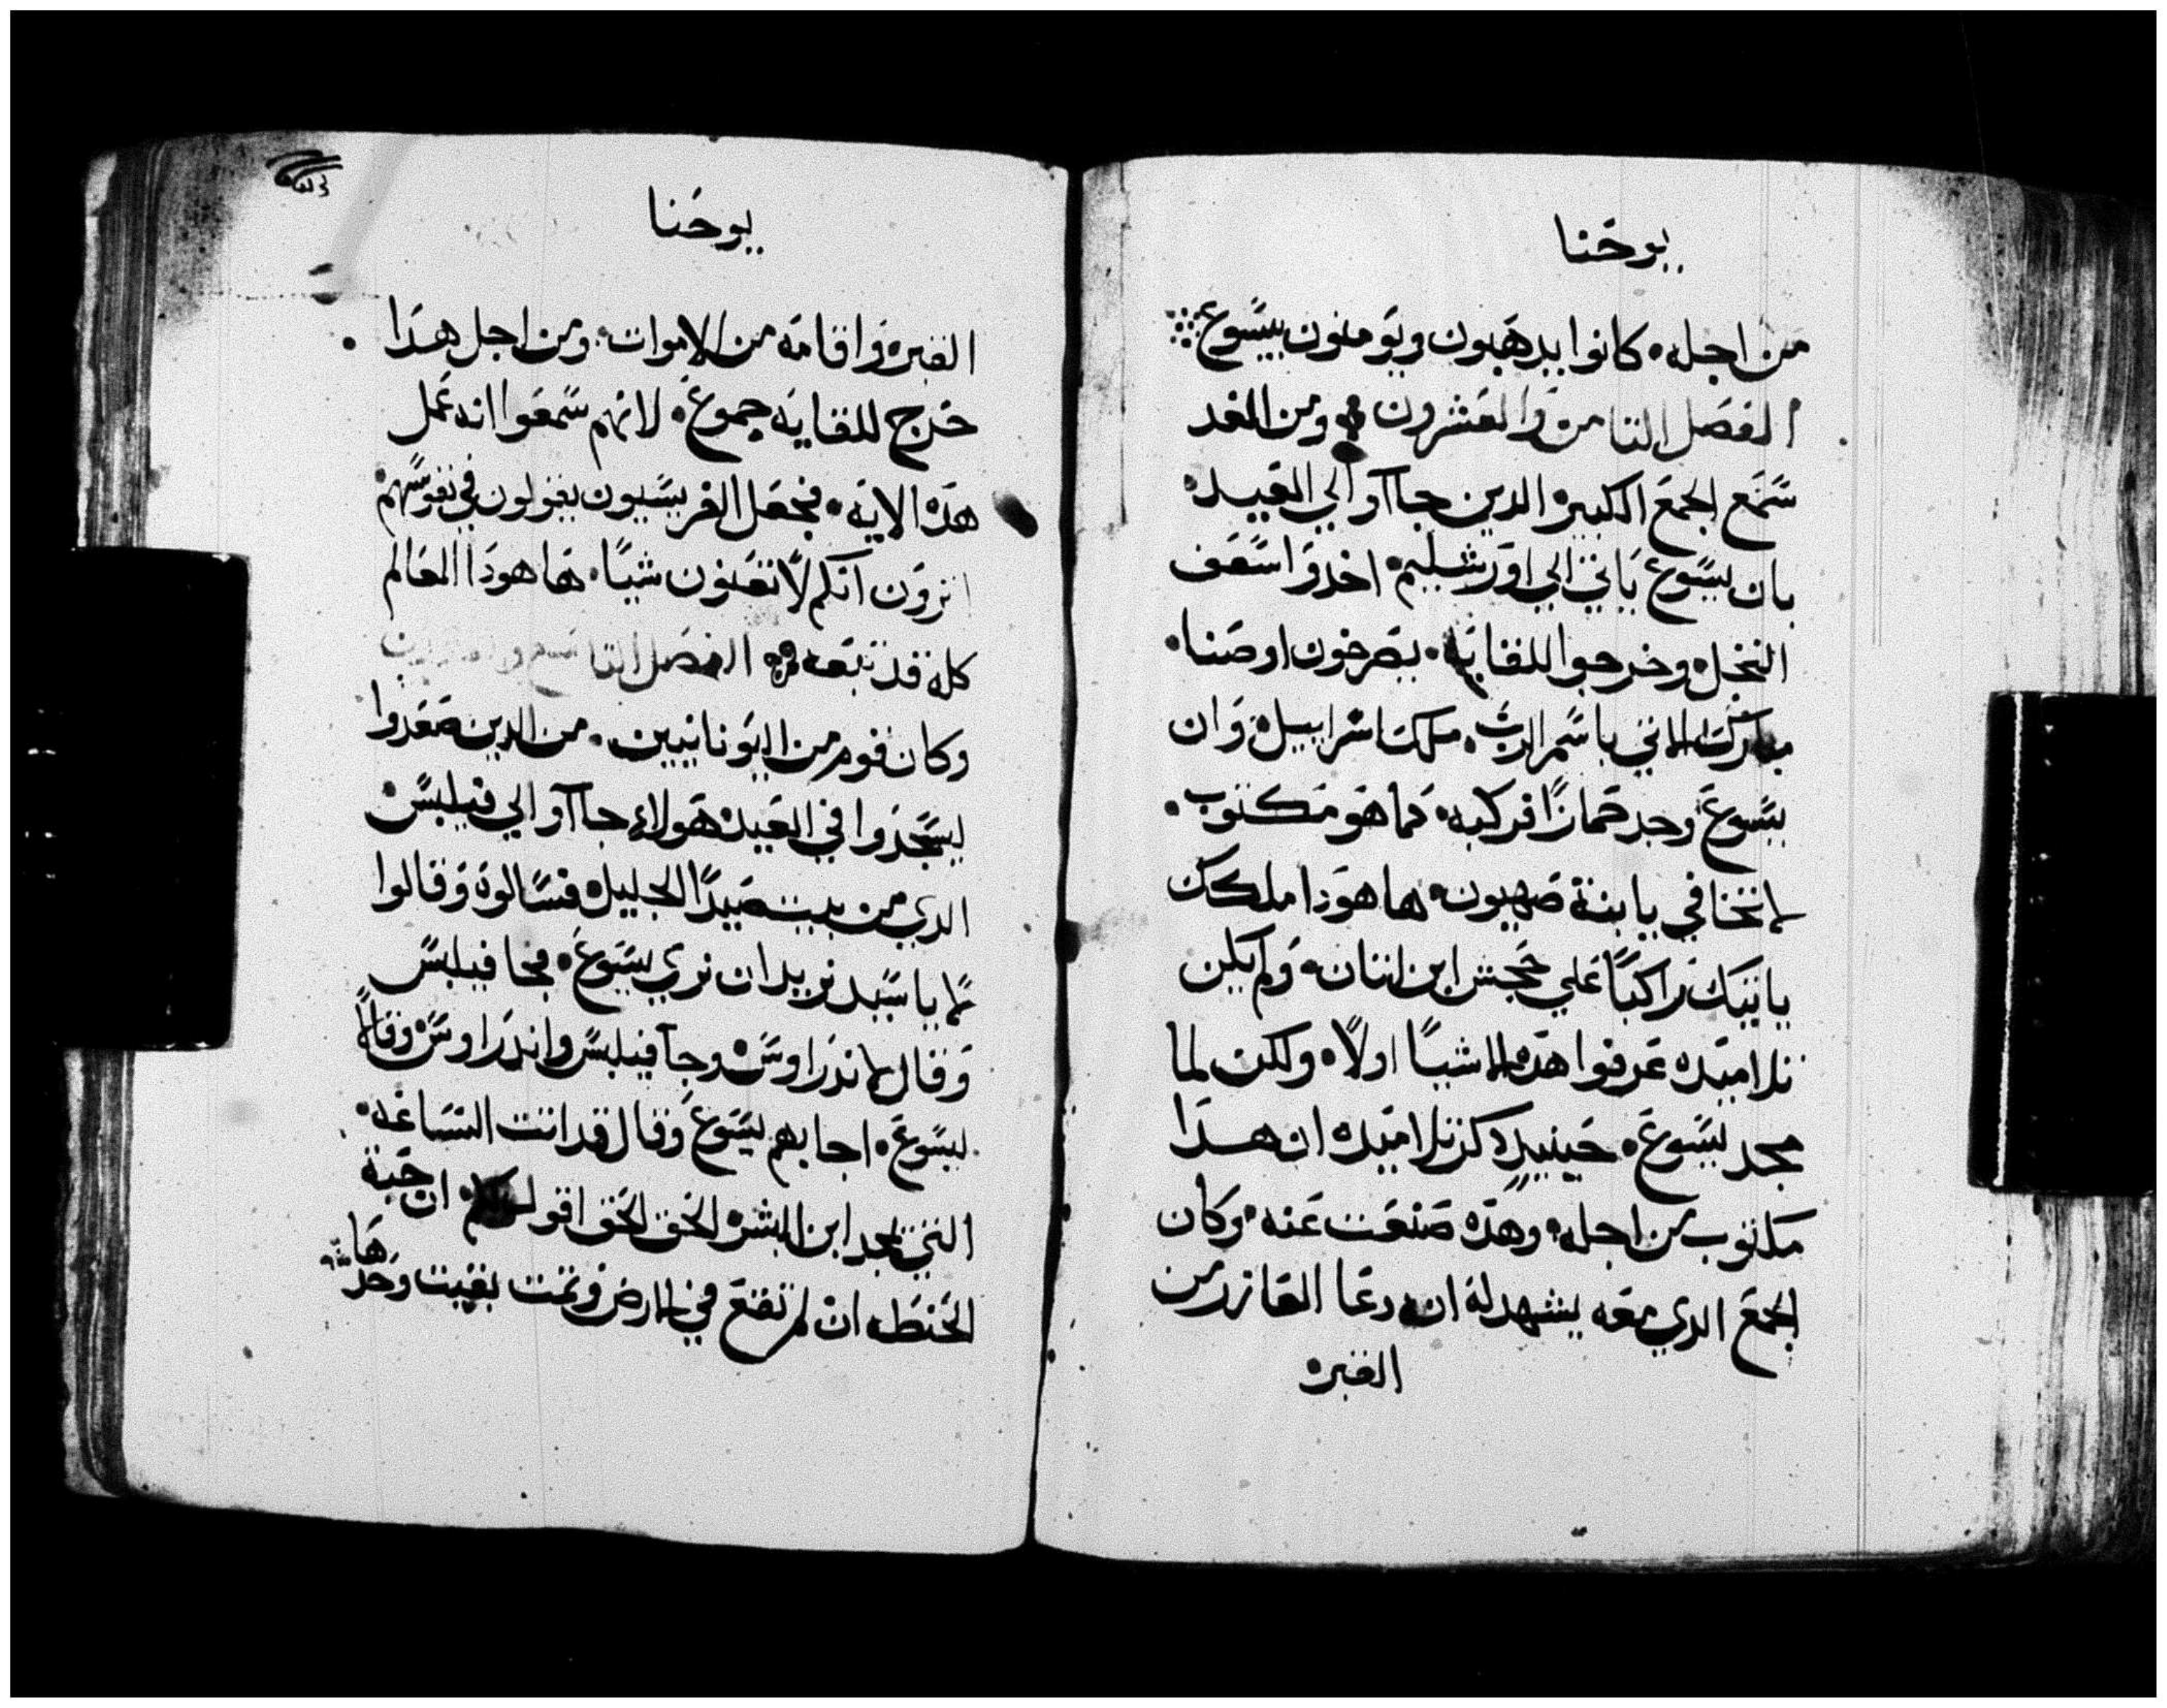 يوحنا
من اجله. كانوا يدهبون ويومنون بيسوع
الفصل التامن والعشرون ومن الغد
سمع الجمع الكبير الدين جاآو الي العيد
بان يسوع ياتي الي اورشليم. اخدو اسعف
النخل وخرجوا للقايه. يصرخون اوصنا.
مبارك الاتي باسم الرب. ملك اسراييل. وان
يسوع وجد حمارًا فركبه. كما هو مكتوب.
لا تخافي يا ابنة صهيون. ها هودا ملكك
ياتيك راكبًا علي جحش ابن اتان. ولم يكن
تلاميده عرفوا هده الاشيا اولاً. ولكن لما
مجد يسوع. حينييدٍ دكر تلاميده ان هدا
مكتوب من اجله. وهده صنعت عنه. وكان
الجمع الدي معه يشهد له انه دعا العازر من
القبر
يوحنا
القبر واقامه من الاموات. ومن اجل هدا
خرج للقايه جموع. لانهم سمعوا انه عمل
هده الايه. فجعل الفريسيون يقولون في نفوسهم
اترون انكم لا تنفعون شيًا. ها هودا العالم
كله قد تبعه الفصل التاسع والعشرون
وكان قوم من اليونانيين. من الدين صعدوا
ليسجدوا في العيد هولاءِ جاآو الي فيلبس
الدي من بيت صيدا الجليل. فسالوه وقالوا
له يا سيد نريد ان نري يسوع. فجا فيلبس
وقال لاندراوس. وجآ فيلبس واندراوس وقالا
ليسوع. اجابهم يسوع وقال قد اتت الساعه.
التي يمجد ابن البشر. الحق الحق اقول لكم. ان حبة
الحنطه ان لم تقع في الارض وتمت بقيت وحدها